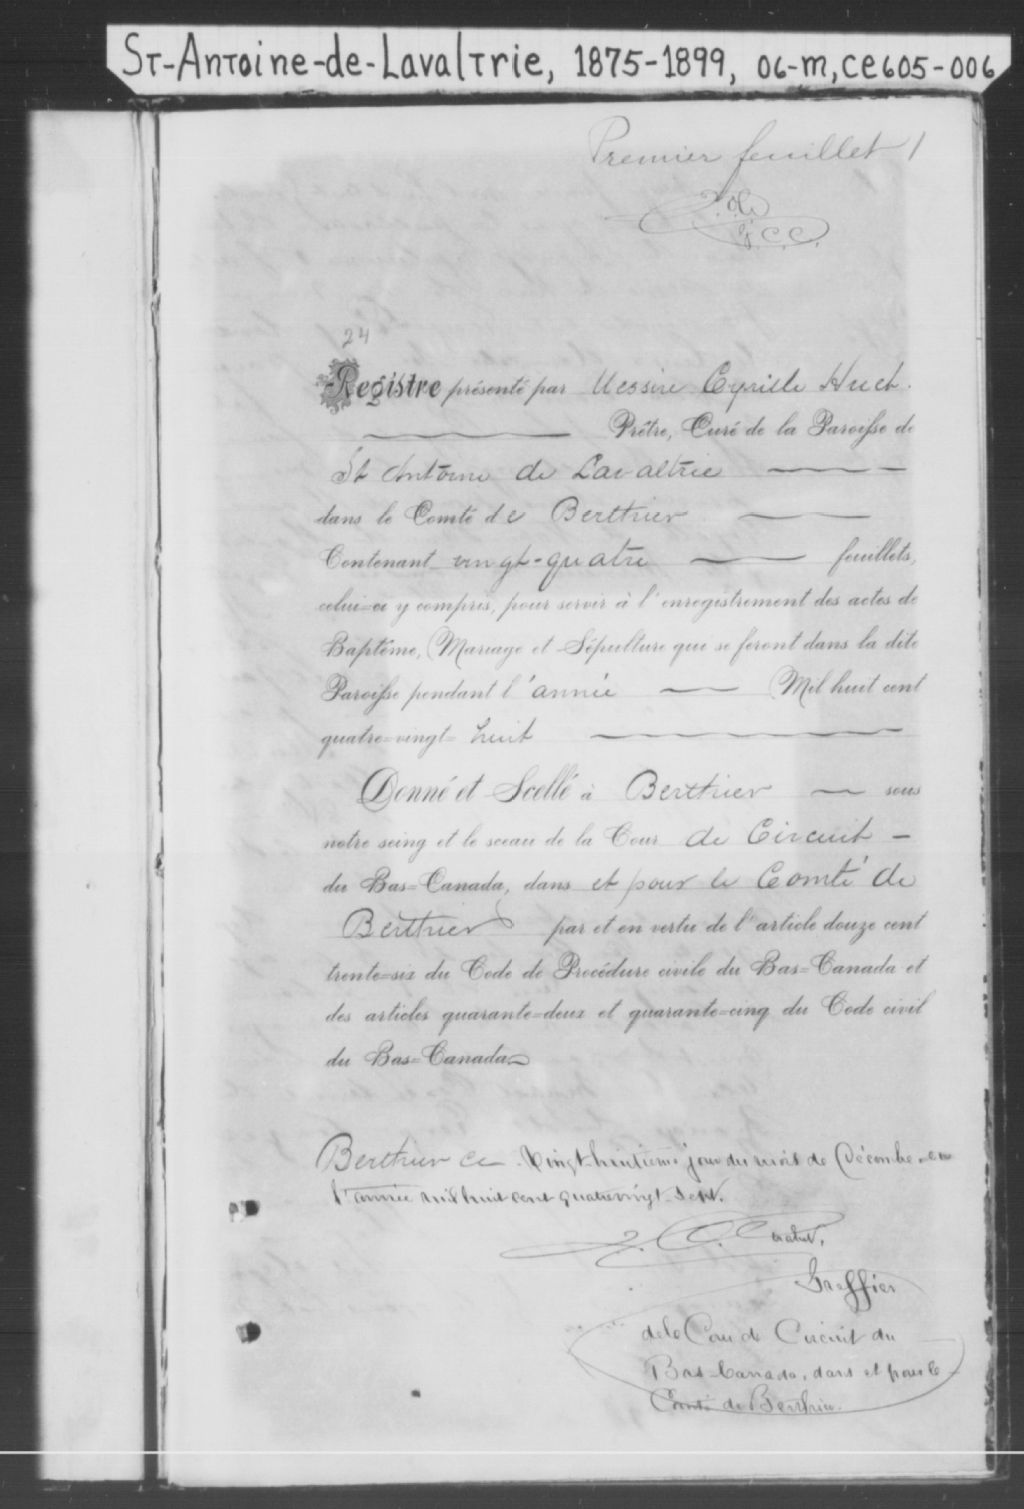 St-Antoine-de-Lavaltrie, 1875-1899, 06-m, ce605-006
Premier feuillet 1
G.C.C.
24
Registre présenté par Messire Cyrille Huet.
Prêtre, Curé de la Paroisse de
St Antoine de Lavaltrie
dans le Comté de Berthier
Contenant vingt-quatre feuillets,
celui-ci y compris, pour servir à l'enregistrement des actes de
Baptême, Mariage et Sépulture qui se feront dans la dite
Paroisse pendant l'année Mil huit cent
quatre-vingt- huit
Donné et Scellé à Berthier sous
notre seing et le sceau de la Cour de Circuit -
du Bas-Canada, dans et pour le Comté de
Berthier par et en vertu de l'article douze cent
trente-six du Code de Procédure civile du Bas-Canada et
des articles quarante-deux et quarante-cinq du Code civil
du Bas-Canada
Berthier ce vingt-huitieme jour du mois de Décembre en
l'année mil huit cent quatrevingt-sept.
Greffier
de la Cour de Circuit du
Bas-Canada, dans et pour le
Comté de Berthier.